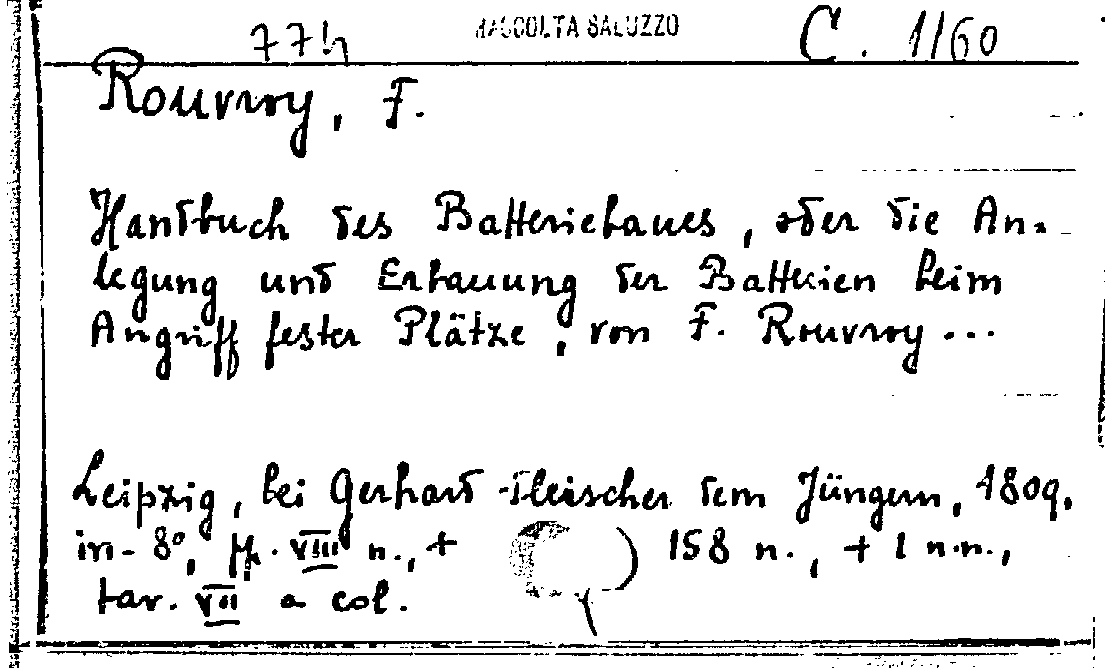 774 RACCOLTA SALUZZO C. 1/60
Rouvroy, F.
Handbuch des Batteriebaues, oder die An-
legung und Erbauung der Batterien beim
Angriff fester Plätze, von F. Rouvroy ...
Leipzig, bei Gerhard Fleischer dem Jüngern, 1809.
in-8°, pp. VIII n., + 158 n., + 1 n.n.,
tav. VII a col.